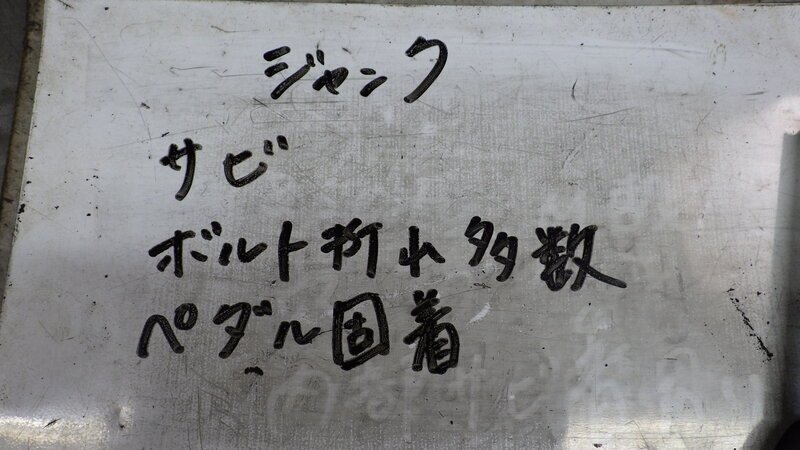 ジャンク
サビ
ボルト折れ多数
ペダル固着
内部サビ